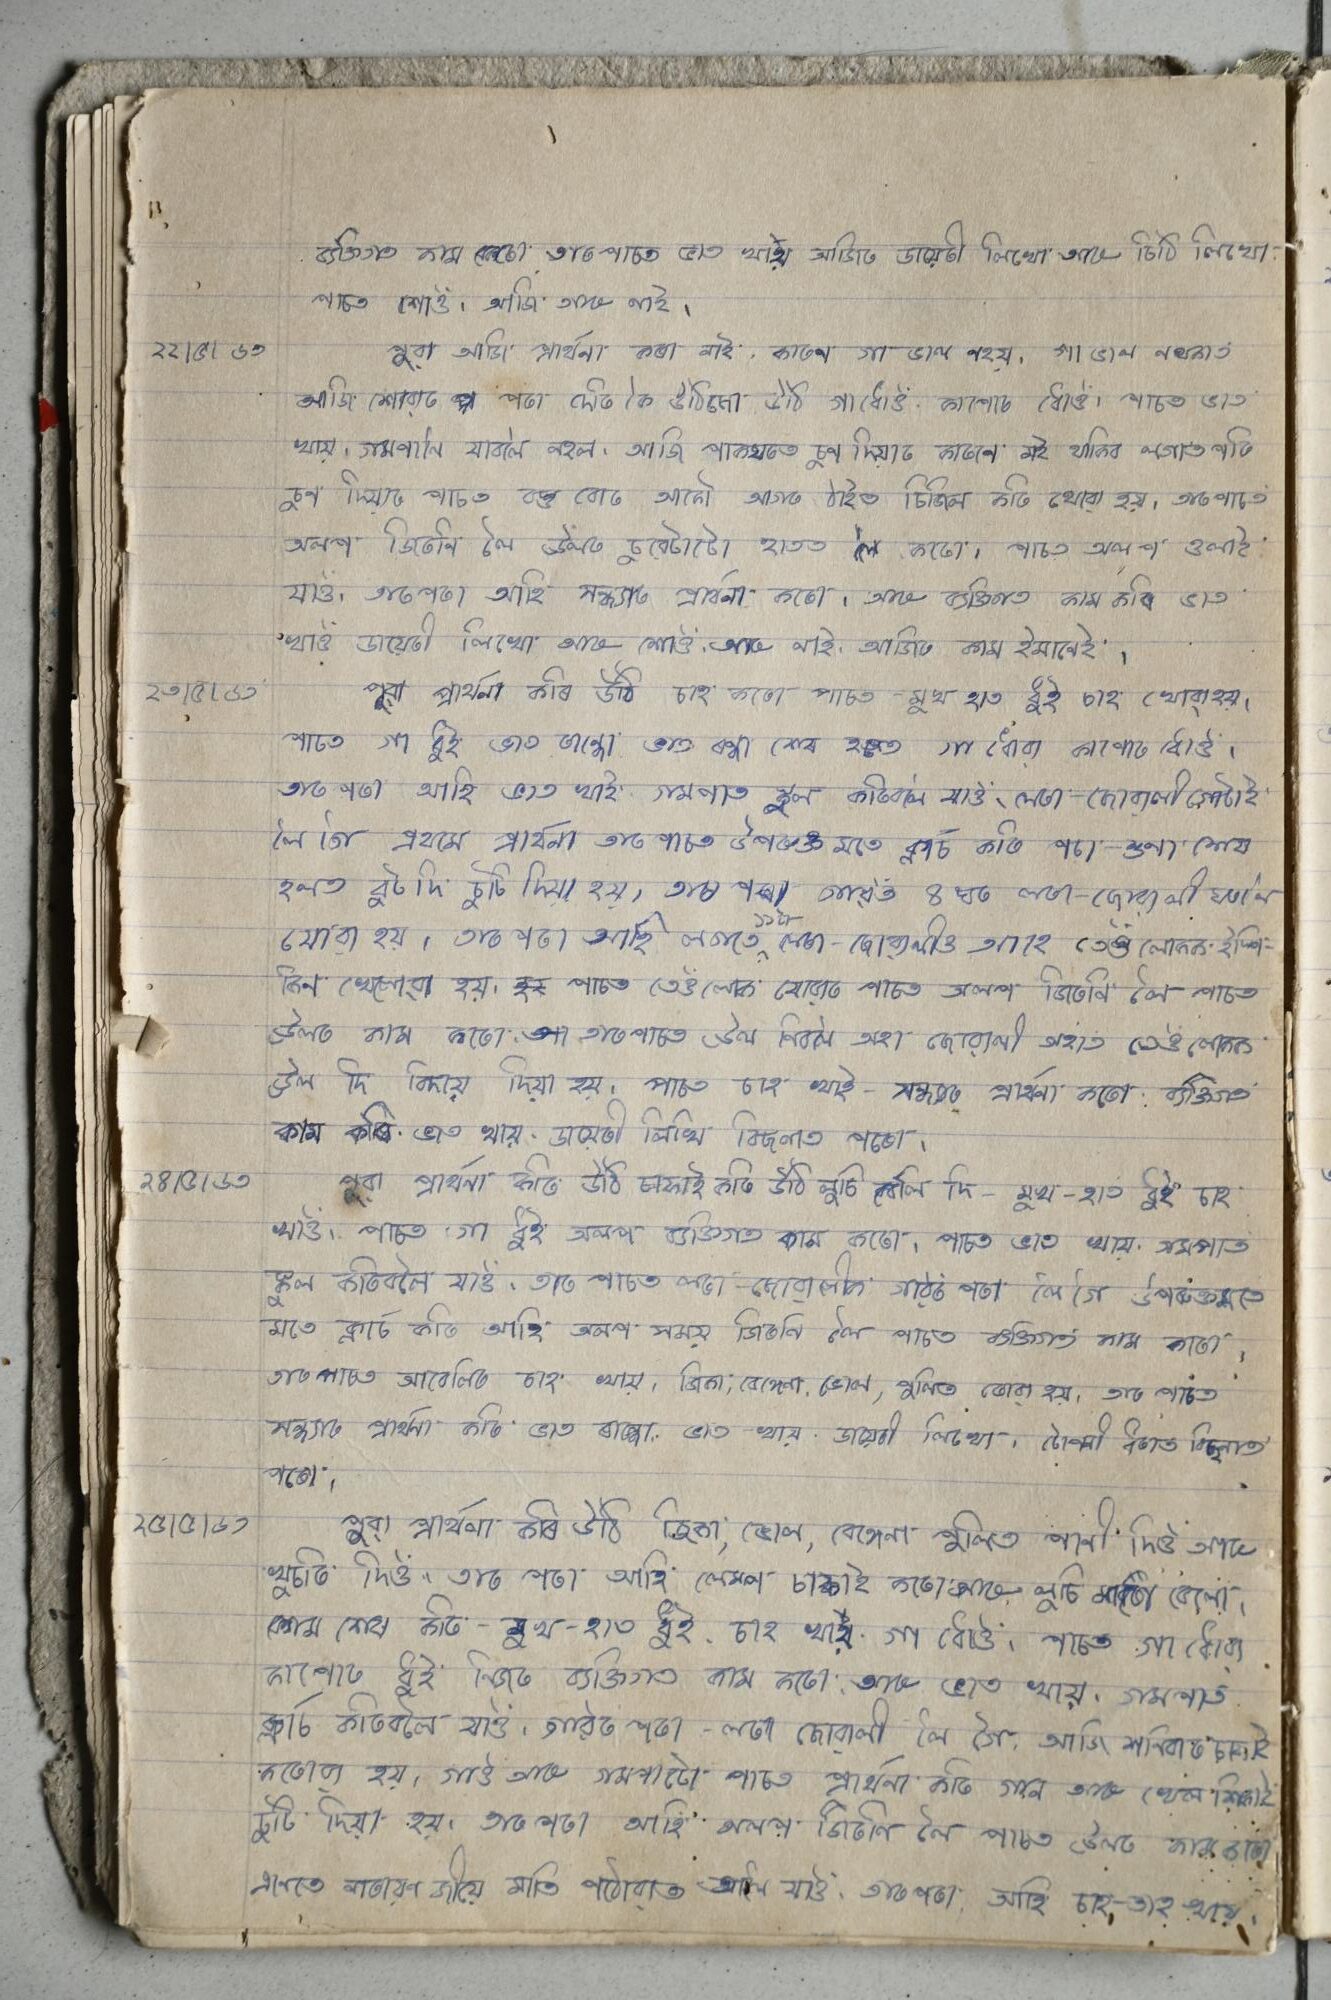 ব্যক্তিগত কাম কৰো তাৰপাচত ভাত খাই আজিৰ ডায়েৰী লিখো আৰু চিঠি লিখো
পাচত শোওঁ। আজি আৰু নাই।
২২।৫।৬৩ পুৱা আজি প্ৰাৰ্থনা কৰা নাই। কাৰণ গা ভাল নহয়। গা ভাল নথকাত
আজি শোৱাৰ পৰা দেৰি কৈ উঠিলো উঠি গা ধোওঁ কাপোৰ ধোওঁ। পাচত ভাত
খায়। গমপানি যাবলৈ নহল। আজি পাকঘৰত চুণ দিয়াৰ কাৰণে মই থাকিব লগাত পৰি
চুণ দিয়াৰ পাচত বস্তু বোৰ আকৌ আগৰ ঠাইত চিজিল কৰি থোৱা হয়। তাৰপাচত
অলপ জিৰণি লৈ উলৰ চুৱেটাৰটো হাতত লৈ কৰো। পাচত অলপ ওলাই
যাওঁ। তাৰপৰা আহি সন্ধ্যাৰ প্ৰাৰ্থনা কৰো। আৰু ব্যক্তিগত কাম কৰি ভাত
খাওঁ ডায়েৰী লিখো আৰু শোওঁ। আৰু নাই। আজিৰ কাম ইমানেই।
২৩।৫।৬৩ পুৱা প্ৰাৰ্থনা কৰি উঠি চাহ কৰো পাচত মুখ হাত ধুই চাহ খোৱা হয়।
পাচত গা ধুই ভাত ৰান্ধো ভাত ৰন্ধা শেষ হলত গা ধোৱা কাপোৰ ধোওঁ।
তাৰ পৰা আহি ভাত খাই গমপাত স্কুল কৰিবলৈ যাওঁ। লৰা-ছোৱালী গোটাই
লৈ গৈ প্ৰথমে প্ৰাৰ্থনা তাৰ পাচত উপৰুক্ত মতে ক্লাচ কৰি পঢ়া-শুনা শেষ
হলত বুট দি চুটি দিয়া হয়। তাৰ পৰা গাৱঁত ৪ ঘৰ লৰা-ছোৱালী ঘৰলৈ
যোৱা হয়। তাৰ পৰা আহি লগতে লৰা-ছোৱালীও আহে তেওঁলোকক
খেলোৱা হয়। পাচত তেওঁলোক যোৱাৰ পাচত অলপ জিৰণি লৈ পাচত
উলৰ কাম কৰো। তাৰপাচত উল নিবলৈ অহা ছোৱালী অহাত তেওঁলোকক
উল দি বিদায় দিয়া হয়। পাচত চাহ খাই - সন্ধ্যাৰ প্ৰাৰ্থনা কৰো। ব্যক্তিগত
কাম কৰি ভাত খায়। ডায়েৰী লিখি বিচনাত পৰো।
২৪।৫।৬৩ পুৱা প্ৰাৰ্থনা কৰি উঠি চাফাই কৰি উঠি লুচি বেলি দি - মুখ-হাত ধুই চাহ
খাওঁ। পাচত গা ধুই অলপ ব্যক্তিগত কাম কৰো। পাচত ভাত খায়। গমপাত
স্কুল কৰিবলৈ যাওঁ। তাৰ পাচত লৰা-ছোৱালীক গাৱঁৰ পৰা লৈ গৈ উপৰুক্ত
মতে ক্লাচ কৰি আহি অলপ সময় জিৰণি লৈ পাচত ব্যক্তিগত কাম কৰো।
তাৰ পাচত আবেলিৰ চাহ খায়। জিকা, বেঙ্গেনা, ভোল, পুলিত ৰোৱা হয়। তাৰ পাচত
সন্ধ্যাৰ প্ৰাৰ্থনা কৰি ভাত ৰান্ধো। ভাত খায়। ডায়েৰী লিখো। বিচনাত
পৰো।
২৫।৫।৬৩ পুৱা প্ৰাৰ্থনা কৰি উঠি জিকা, ভোল, বেঙ্গেনা পুলিত পানী দিওঁ আৰু
খুচৰি দিওঁ। তাৰ পৰা আহি লেম্প চাফাই কৰো আৰু লুচি বেলো।
কাম শেষ কৰি - মুখ-হাত ধুই চাহ খাই গা ধোওঁ। পাচত গা ধোৱা
কাপোৰ ধুই নিজৰ ব্যক্তিগত কাম কৰো। আৰু ভাত খায়। গমপাত
ক্লাচ কৰিবলৈ যাওঁ। গাৱঁৰ পৰা লৰা ছোৱালী লৈ গৈ। আজি শনিবাৰ চাফাই
কৰোৱা হয়। গাওঁ আৰু গমপাটো পাচত প্ৰাৰ্থনা কৰি গান আৰু খেল শিকাই
চুটি দিয়া হয়। তাৰ পৰা আহি অলপ জিৰণি লৈ পাচত উলৰ কাম কৰো
এনেতে নাৰায়ণ জীয়ে মাতি পঠোৱাত যাওঁ। তাৰপৰা আহি চাহ-তাহ খায়।